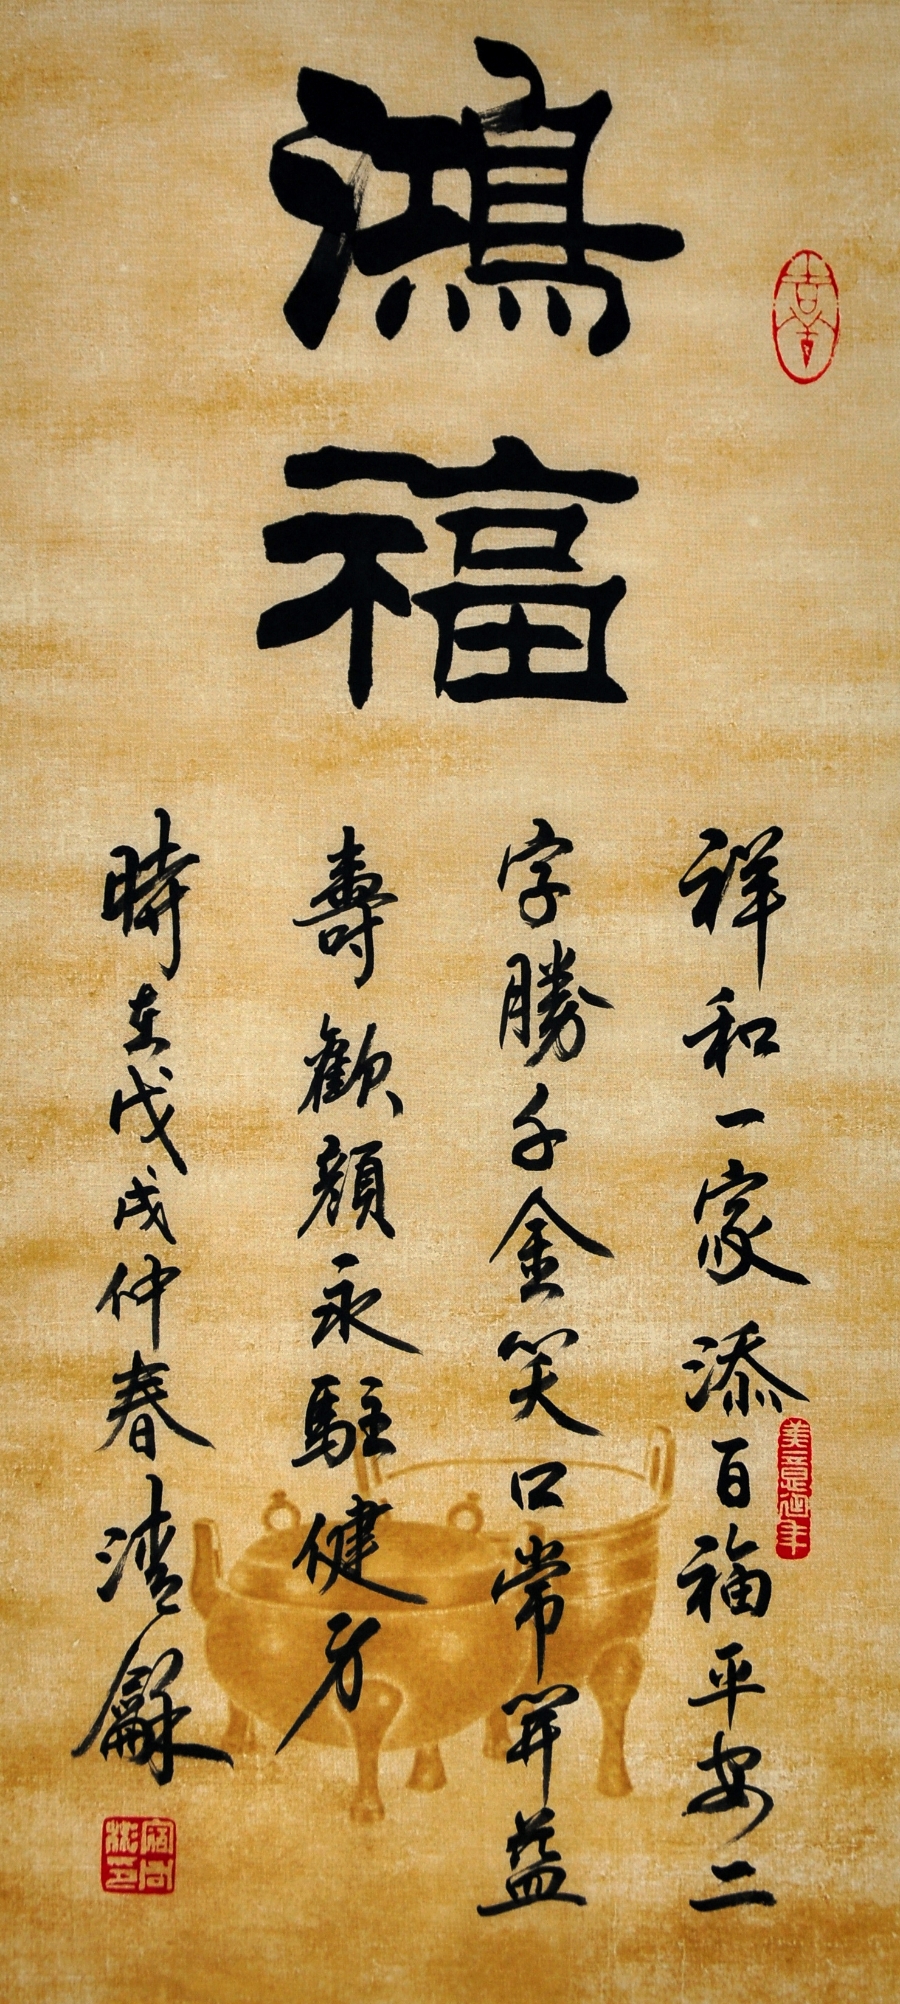 鴻福
祥和一家添百福平安二
字勝千金笑口常開益
壽歡顏永駐健方
時在戊戌仲春清龢
美意延年